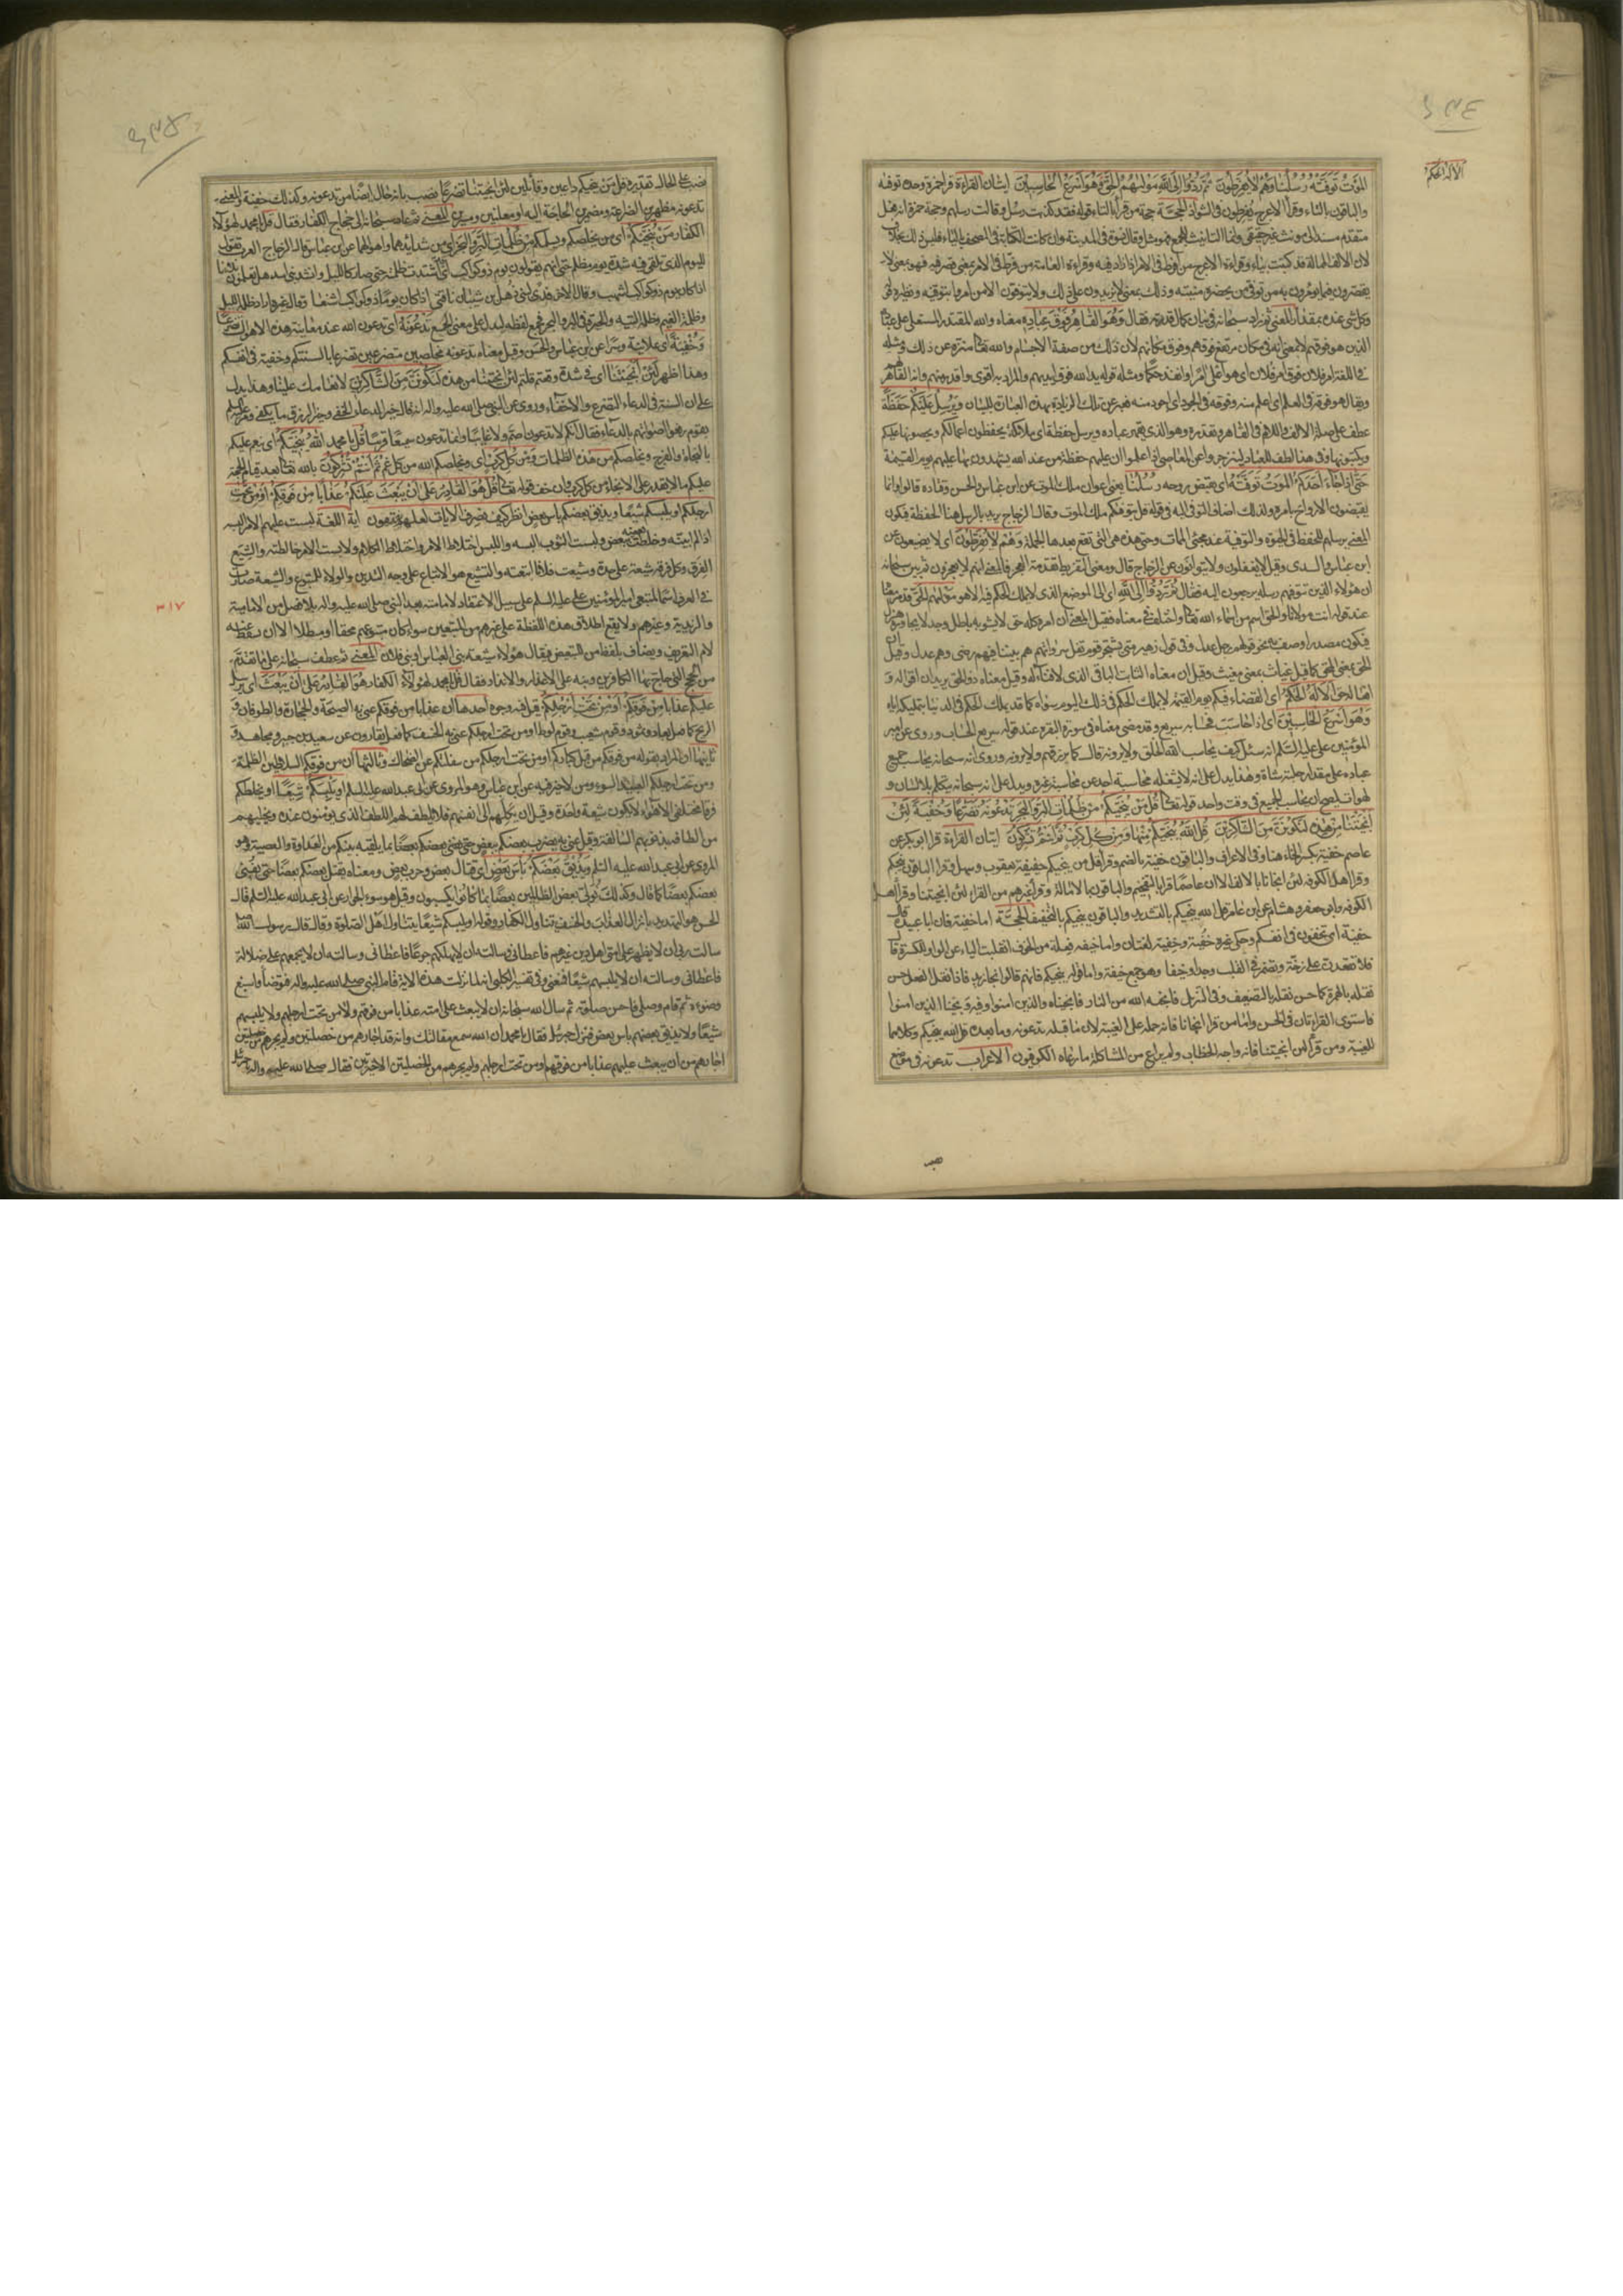 الالة الحكم
الموت توفته رسلنا وهم لا يفرطون ثم ردوا الى الله موليهم الحق وهو اسرع الحاسبين ايتان القراءة قرا حمزة وحده توفيه
والباقون بالتاء وقرأ الاعرج يفرطون في الشواذ الحجة حجة من قرأ بالتاء قوله فقد كذبت رسل وقالت رسلهم وحجة حمزة انه فعل
متقدم مسند الى مونث غير حقيقي وانما التانيث للجمع فهو مثل وقال نسوة في المدينة وان كانت الكتابة في المصحف بالياء فليس ذلك بخلاف
لان الالف الممالة قد كتبت بياء وقراءة الاعرج من افرط في الامر اذا زاد فيه وقراءة العامة من فرط في الامر بمعنى قصر فيه فهو بمعنى لا
وكل شيء عنده بمقدار المعنى ثم زاد سبحانه في بيان كمال قدرته فقال وهو القاهر فوق عباده معناه والله المقتدر المستعلي على عباده
الذين هو فوقهم لا بمعنى انه في مكان مرتفع فوقهم وفوق مكانهم لان ذلك من صفة الاجسام والله تعالى منزه عن ذلك ومثله
في اللغة امر فلان فوق امر فلان اي هو اعلى امرا وانفذ حكما ومثله قوله يد الله فوق ايديهم والمراد به اقوى واقدر منهم وانه القاهر
ويقال هو فوقه في العلم اي اعلم منه وفوقه في الجود اي اجود منه فعبر عن تلك الزيادة بهذه العبارة للبيان ويرسل عليكم حفظة
عطف على صلة الالف واللام في القاهر وتقديره وهو الذي يقهر عباده ويرسل حفظة اي ملائكة يحفظون اعمالكم ويحصونها عليكم
ويكتبونها وفي هذا لطف للعباد لينزجروا عن المعاصي اذا علموا ان عليهم حفظة من عند الله يشهدون بها عليهم يوم القيمة
حتى اذا جاء احدكم الموت توفته اي يقبض روحه رسلنا يعني اعوان ملك الموت عن ابن عباس والحسن وقتاده قالوا وانما
يقبضون الارواح بامره ولذلك اضاف التوفي اليه في قوله قل يتوفكم ملك الموت وقال الزجاج يريد بالرسل هنا الحفظة فيكون
المعنى يرسلهم للحفظ في الحيوة والتوفية عند مجئ الممات وحتى هذه هي التي تقع بعدها الجملة وهم لا يفرطون اي لا يضيعون عن
ابن عباس والسدى وقيل لا يغفلون ولا يتوانون عن الزجاج قال ومعنى التفريط تقدمة العجز فالمعنى انهم لا يعجزون ثم بين سبحانه
ان هؤلاء الذين تتوفهم رسله يرجعون اليه فقال ثم ردوا الى الله اي الى الموضع الذي لا يملك الحكم فيه الا هو موليهم الحق قد مر معناه
عند قوله انت مولانا والحق اسم من اسماء الله تعالى واختلف في معناه فقيل المعنى ان امره كله حق لا يشوبه باطل وجد لا يجاوره هزل
فيكون مصدرا وصف به نحو قولهم رجل عدل وفي قول زهير متى يشتجر قوم تقل سرواتهم هم بيننا فهم رضى وهم عدل وقيل ان
الحق بمعنى المحق كما قيل غياث بمعنى مغيث وقيل ان معناه الثابت الباقي الذي لا فناء له وقيل معناه ذو الحق يريد ان اقواله و
افعاله حق الا له الحكم اي القضاء فيكم يوم القيمة لا يملك الحكم في ذلك اليوم سواه كما قد يملك الحكم في الدنيا بتمليكه اياه
وهو اسرع الحاسبين اي اذا حاسب فحسابه سريع وقد مضى معناه في سورة البقرة عند قوله سريع الحساب وروى عن امير
المؤمنين على عليه السلم انه سئل كيف يحاسب الله الخلق ولا يرونه قال كما يرزقهم ولا يرونه وروى انه سبحانه يحاسب جميع
عباده على مقدار حلبة شاة وهذا يدل على انه لا يشغله محاسبة احد عن محاسبة غيره ويدل على انه سبحانه يتكلم بلا لسان و
لهوات ليصح ان يحاسب الجميع في وقت واحد قوله تعالى قل من ينجيكم من ظلمات البر والبحر تدعونه تضرعا وخفية لئن
انجيتنا من هذه لنكونن من الشاكرين قل الله ينجيكم منها ومن كل كرب ثم انتم تشركون ايتان القراءة قرا ابو بكر عن
عاصم خفية بكسر الخاء هنا وفي الاعراف والباقون خفية بالضم وقرا قل من ينجيكم خفيفة يعقوب وسهل وقرا الباقون ينجيكم
وقرا اهل الكوفة لئن انجانا بالالف الا ان عاصما قرا بالتفخيم والباقون بالامالة وقرا غيرهم من القراء لئن انجيتنا وقرا اهل
الكوفة وابو جعفر وهشام عن ابن عامر قل الله ينجيكم بالتشديد والباقون ينجيكم بالتخفيف الحجة اما خفية فان ابا عبيدة قال
خفية اي تخفون في انفسكم وحكى غيره خفية وخفية لغتان واما خيفه ففعلة من الخوف انقلبت الياء عن الواو للكسرة قال
فلا تقعدن على زخة وتضمر في القلب وجدا وخيفا وهو جمع خيفة واما قوله ينجيكم فانهم قالوا نجا زيد فاذا نقل الفعل حسن
نقله بالهمزة كما حسن نقله بالتضعيف وفي التنزيل فانجيه الله من النار فانجيناه والذين امنوا وفيه ونجينا الذين امنوا
فاستوى القراءتان في الحسن واما من قرا انجانا فانه حمله على الغيبة لان ما قبله تدعونه وما بعده قل الله ينجيكم وكلاهما
للغيبة ومن قرا لئن انجيتنا فانه واجه الخطاب ولم يراع من المشاكلة ما راعاه الكوفيون الاعراب تدعونه في موضع
نصب على الحال تقديره قل من ينجيكم داعين وقائلين لئن انجيتنا تضرعا نصب بانه حال ايضا من تدعونه وكذلك خفية المعنى
تدعونه مظهرين الضراعة ومضمرين الحاجة اليه او معلنين ومسرين المعنى ثم عاد سبحانه الى حجاج الكفار فقال قل يا محمد لهؤلاء
الكفار من ينجيكم اي من يخلصكم ويسلمكم من ظلمات البر والبحر اي من شدايدهما واهوالهما عن ابن عباس قال الزجاج العرب تقول
لليوم الذي تلقى فيه شدة يوم مظلم حتى انهم يقولون يوم ذو كواكب اي اشتدت ظلمته حتى صار كالليل وانشد بني اسد هل تعلمون بلاءنا
اذا كان يوم ذو كواكب اشهب وقال الاخر فدى لبني ذهل بن شيبان ناقتي اذا كان يوما ذو كواكب اشنعا وقال غيره اراد ظلمة الليل
وظلمة الغيم وظلمة التيه والحيرة في البر والبحر فجمع لفظه ليدل على معنى الجمع تدعونه اي تدعون الله عند معاينة هذه الاهوال تضرعا
وخفية اي علانية وسرا عن ابن عباس والحسن وقيل معناه تدعونه مخلصين متضرعين تضرعا بالسنتكم وخفية في انفسكم
وهذا اظهر لئن انجيتنا اي في شدة وقعتم قلتم لئن انجيتنا من هذه لنكونن من الشاكرين لانعامك علينا وهذا يدل
على ان السنة في الدعاء التضرع والاخفاء وروى عن النبي صلى الله عليه واله انه قال خير الدعاء الخفي وخير الرزق ما يكفي ومر عليه السلم
بقوم رفعوا اصواتهم بالدعاء فقال انكم لا تدعون اصم ولا غايبا وانما تدعون سميعا قريبا قل يا محمد الله ينجيكم اي ينعم عليكم
بالنجاة والفرج ويخلصكم من هذه الظلمات ومن كل كرب اي ويخلصكم الله من كل غم ثم انتم تشركون بالله تعالى بعد قيام الحجة
عليكم ما لا يقدر على الانجاء من كل كرب وان خف قوله تعالى قل هو القادر على ان يبعث عليكم عذابا من فوقكم او من تحت
ارجلكم او يلبسكم شيعا ويذيق بعضكم باس بعض انظر كيف نصرف الايات لعلهم يفقهون اية اللغة لبست عليهم الامر البسه
اذا لم ابينه وخلطت بعضه ببعض ولبست الثوب البسه واللبس اختلاط الامر واختلاط الكلام ولابست الامر خالطته والشيع
الفرق وكل فرقة شيعة على حدة وشيعت فلانا اتبعته والتشيع هو الاتباع على وجه التدين والولاء للمتبوع والشيعة صارت
في العرف اسما لمتبعي امير المؤمنين على عليه السلم على سبيل الاعتقاد لامامته بعد النبي صلى الله عليه واله بلا فصل من الامامية
والزيدية وغيرهم ولا يقع اطلاق هذه اللفظة على غيرهم من المتبعين سواء كان متبوعهم محقا او مبطلا الا ان يسقط عنه
لام التعريف ويضاف بلفظ من التبعيض فيقال هؤلاء شيعة بني العباس او بني فلان المعنى ثم عطف سبحانه على ما تقدم
من الحجج التي حاج بها الكافرين ونبه على الاعذار والانذار فقال قل يا محمد لهؤلاء الكفار هو القادر على ان يبعث اي يرسل
عليكم عذابا من فوقكم او من تحت ارجلكم قيل فيه وجوه احدها ان عذابا من فوقكم عنى به الصيحة والحجارة والطوفان و
الريح كما فعل بعاد وثمود وقوم شعيب وقوم لوط او من تحت ارجلكم عنى به الخسف كما فعل بقارون عن سعيد بن جبير ومجاهد و
ثانيها ان المراد بقوله من فوقكم من قبل كباركم او من تحت ارجلكم من سفلتكم عن الضحاك وثالثها ان من فوقكم السلاطين الظلمة
ومن تحت ارجلكم العبيد السوء ومن لا خير فيه عن ابن عباس وهو المروى عن ابى عبد الله عليه السلم او يلبسكم شيعا او يخلطكم
فرقا مختلفي الاهواء لا تكون شيعة واحدة وقيل ان يكلهم الى انفسهم فلا يلطف لهم اللطف الذي يؤمنون عنده ويخليهم
من الطافه بذنوبهم السالفة وقيل عنى به يضرب بعضكم ببعض حتى يفنى بعضكم بعضا بما يلقيه بينكم من العداوة والعصبية وهو
المروى عن ابى عبد الله عليه السلم ويذيق بعضكم باس بعض اي قتال بعض وحرب بعض ومعناه يقتل بعضكم بعضا حتى يفنى
بعضكم بعضا كما قال وكذلك نولى بعض الظالمين بعضا بما كانوا يكسبون وقيل هو سوء الجوار عن ابى عبد الله عليه السلم قال
الحسن هو التهديد بانزال العذاب والخسف يتناول الكفار وقوله او يلبسكم شيعا يتناول اهل الصلوة وقال قال رسول الله
سالت ربى ان لا يظهر على امتى اهل دين غيرهم فاعطانى وسالته ان لا يهلكهم جوعا فاعطانى وسالته ان لا يجمعهم على ضلالة
فاعطانى وسالته ان لا يلبسهم شيعا فمنعنى وفي تفسير الكلبى انه لما نزلت هذه الاية قام النبى صلى الله عليه واله فتوضا واسبغ
وضوءه ثم قام وصلى فاحسن صلوته ثم سال الله سبحانه ان لا يبعث على امته عذابا من فوقهم ولا من تحت ارجلهم ولا يلبسهم
شيعا ولا يذيق بعضهم باس بعض فنزل جبرئيل فقال يا محمد ان الله سمع مقالتك وانه قد اجارهم من خصلتين ولم يجرهم من خصلتين
اجارهم من ان يبعث عليهم عذابا من فوقهم او من تحت ارجلهم ولم يجرهم من الخصلتين الاخريين فقال صلى الله عليه واله
٣١٧